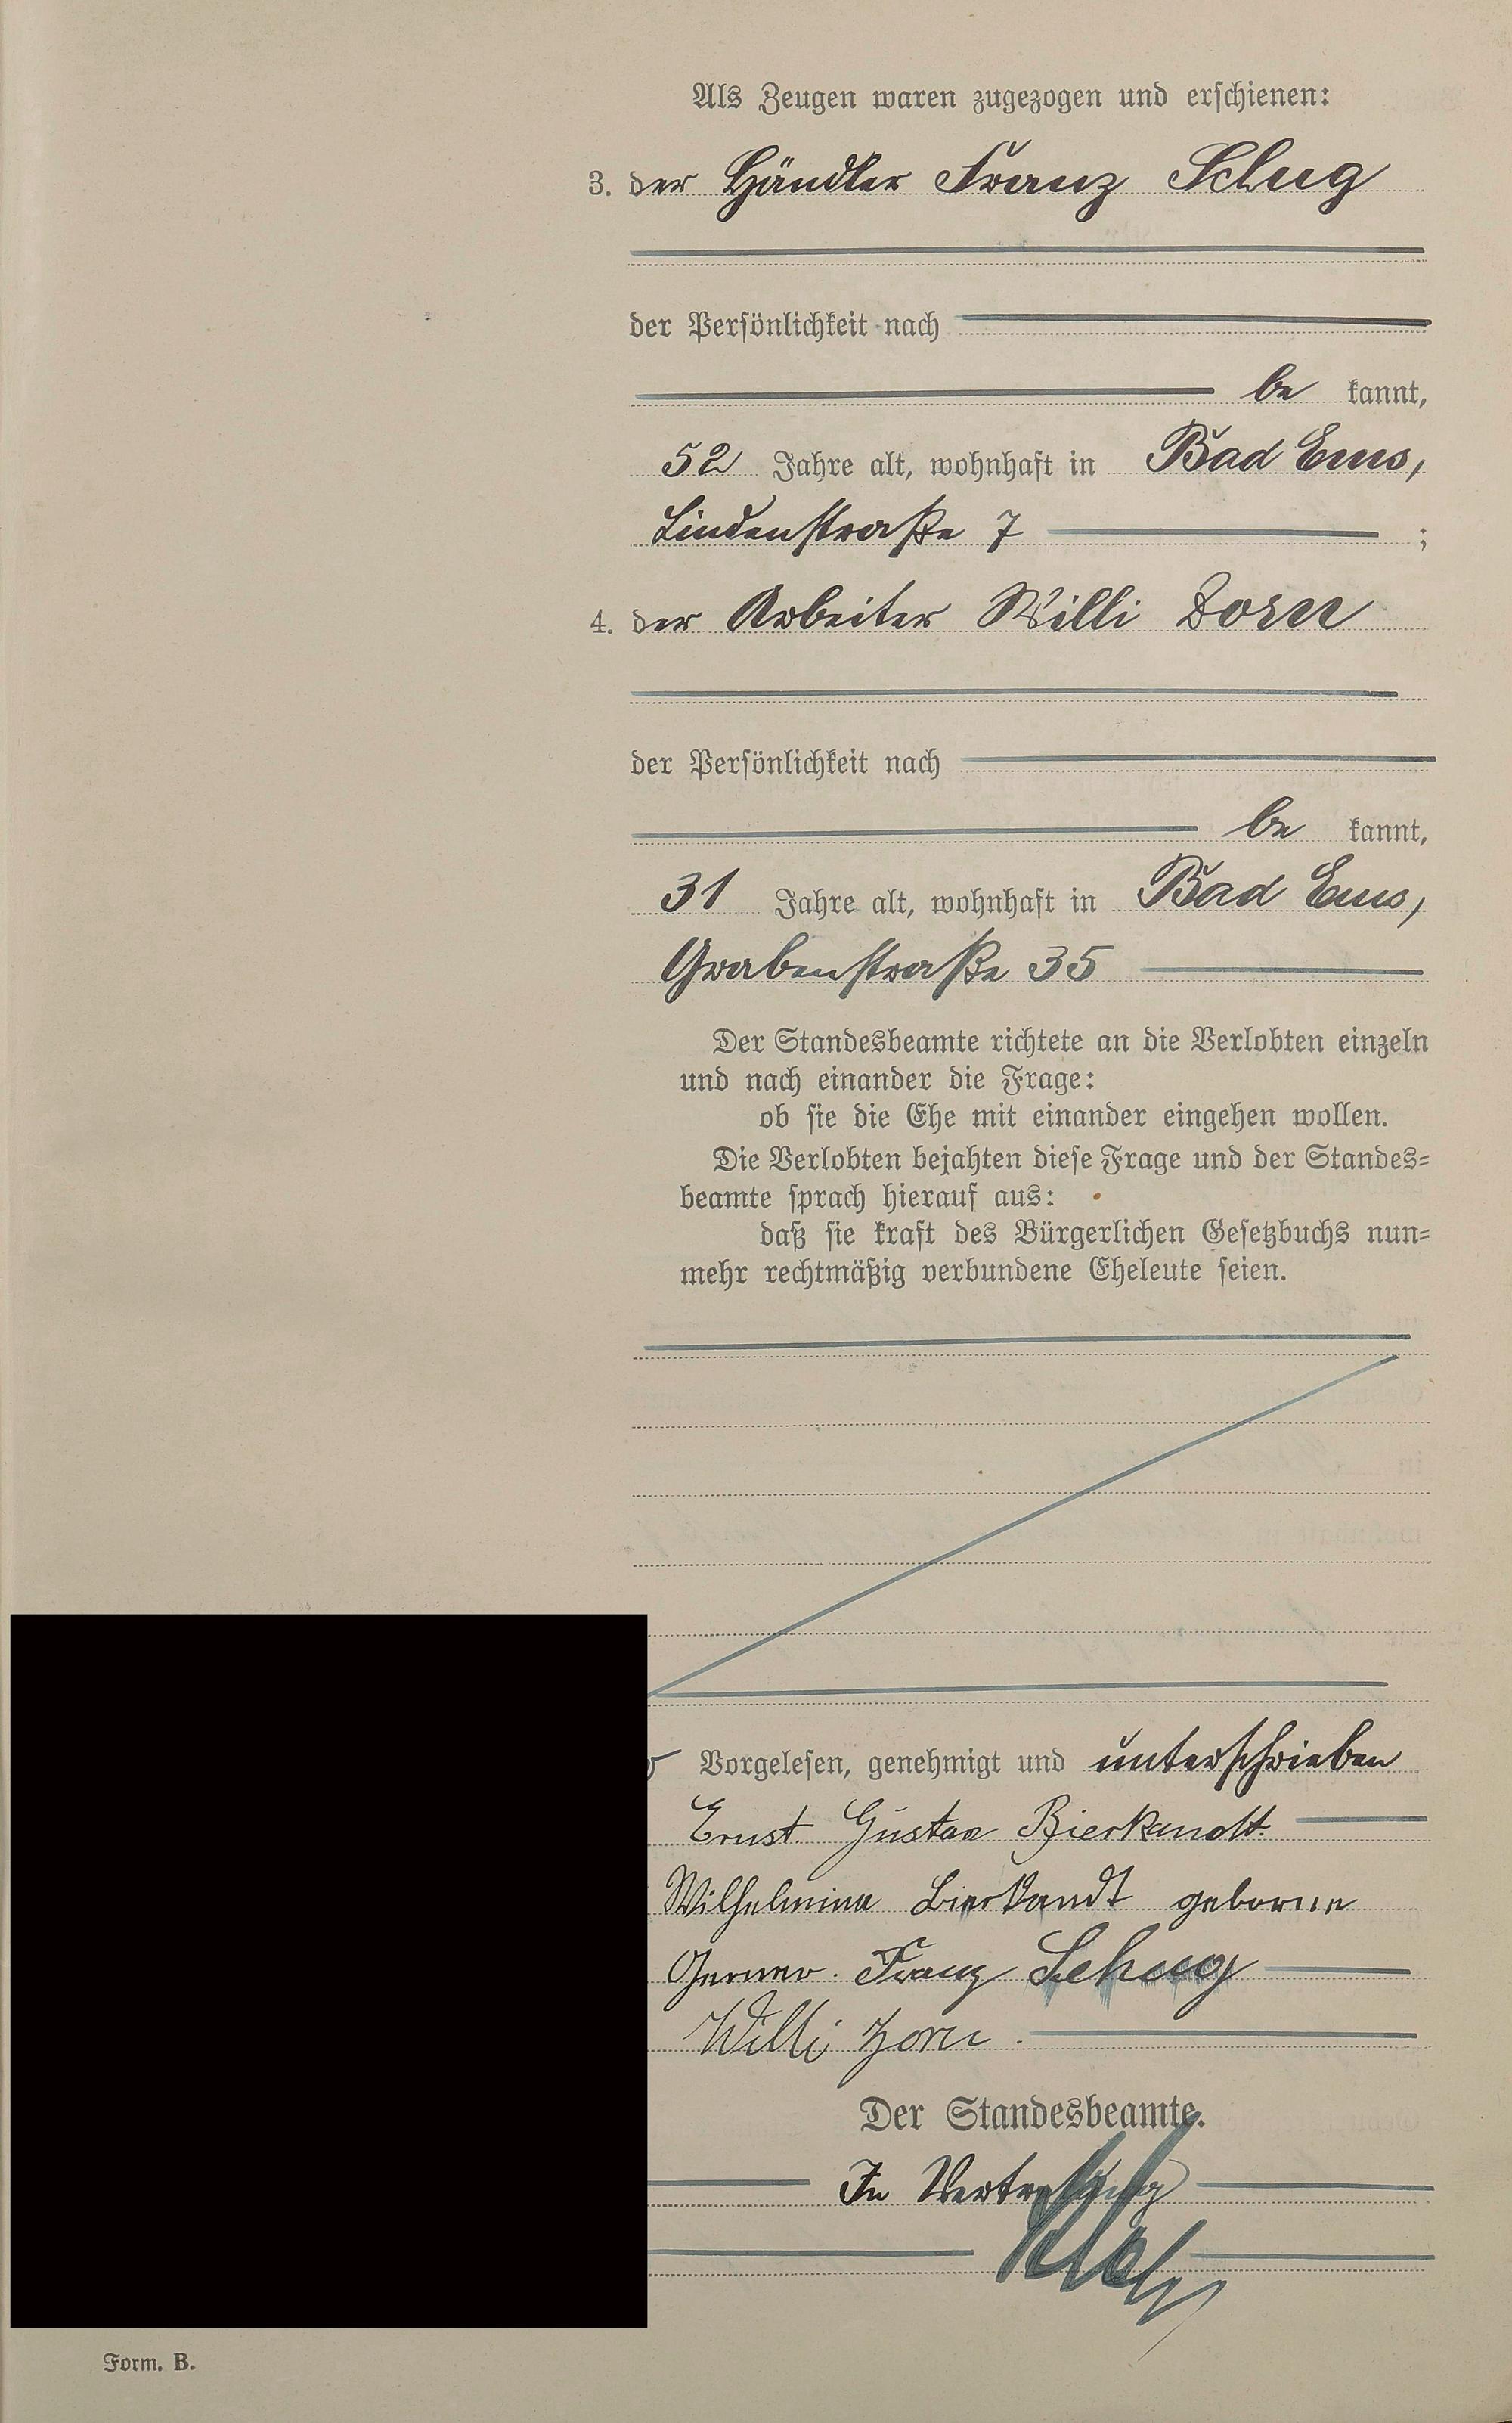 Als Zeugen waren zugezogen und erschienen:
3. der Händler Franz Schug
der Persönlichkeit nach
be kannt,
52 Jahre alt, wohnhaft in Bad Ems,
Lindenstraße 7 ;
4. der Arbeiter Willi Zorn
der Persönlichkeit nach
be kannt,
31 Jahre alt, wohnhaft in Bad Ems,
Grabenstraße 35
Der Standesbeamte richtete an die Verlobten einzeln
und nach einander die Frage:
ob sie die Ehe mit einander eingehen wollen.
Die Verlobten bejahten diese Frage und der Standes=
beamte sprach hierauf aus:
daß sie kraft des Bürgerlichen Gesetzbuchs nun=
mehr rechtmäßig verbundene Eheleute seien.
Vorgelesen, genehmigt und unterschrieben
Ernst Gustav Bierkandt.
Wilhelmine Bierkandt geborne
Franz Schug
Willi Zorn.
Der Standesbeamte.
In Vertretung
Form. B.